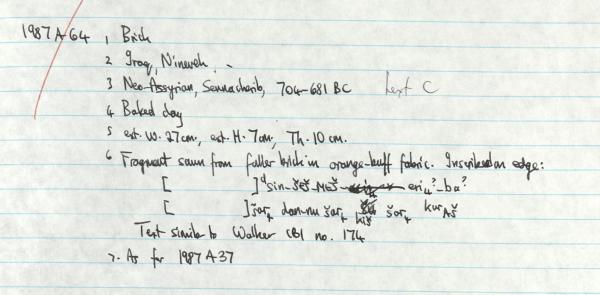 1987 A-64 1 Brick
2 Iraq, Nineveh.
3 Neo-Assyrian, Sennacherib, 704-681 BC text C
4 Baked clay
5 est. W. 27cm, est. H. 7cm, Th. 10 cm.
6 Fragment sawn from fuller brick in orange-buff fabric. Inscribed on edge:
[ ]ᵈsin-ŠEŠ-MEŠ eri₄?-ba?
[ ]šar₄ dan-nu šar₄ kiš šar₄ kur Aš
Text similar to Walker CBI no. 174
7. As for 1987 A37